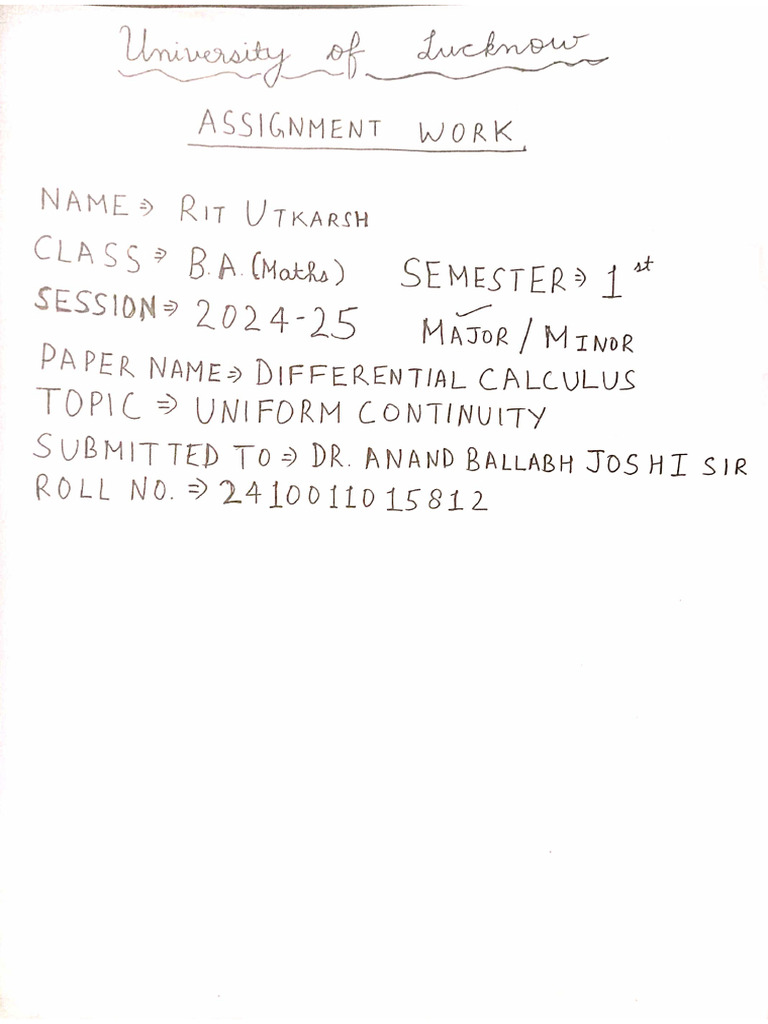 University of Lucknow
ASSIGNMENT WORK
NAME ⇒ RIT UTKARSH
CLASS ⇒ B.A. (Maths) SEMESTER ⇒ 1st
SESSION ⇒ 2024-25 MAJOR / MINOR
PAPER NAME ⇒ DIFFERENTIAL CALCULUS
TOPIC ⇒ UNIFORM CONTINUITY
SUBMITTED TO ⇒ DR. ANAND BALLABH JOSHI SIR
ROLL NO. ⇒ 2410011015812